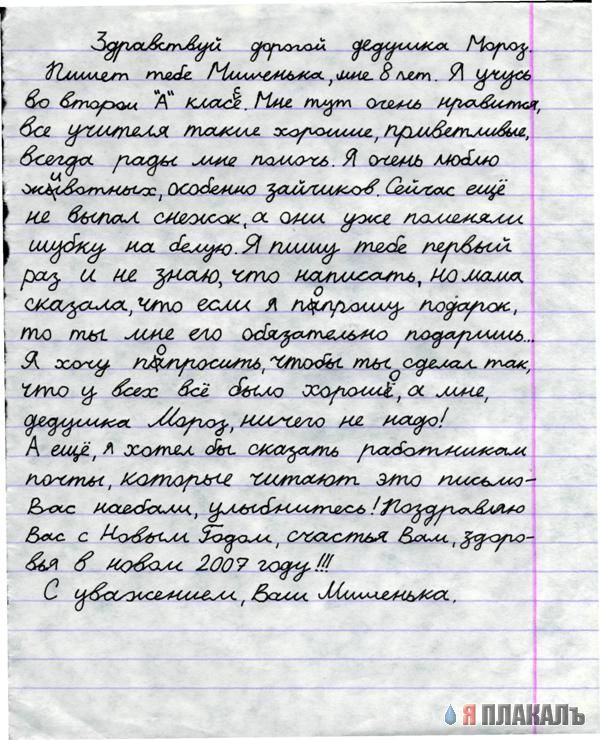 Здравствуй дорогой дедушка Мороз.
Пишет тебе Мишенька, мне 8 лет. Я учусь
во втором "А" класе. Мне тут очень нравится,
все учителя такие хорошие, приветливые,
всегда рады мне помочь. Я очень люблю
животных, особенно зайчиков. Сейчас ещё
не выпал снежок, а они уже поменяли
шубку на белую. Я пишу тебе первый
раз и не знаю, что написать, но мама
сказала, что если я попрошу подарок,
то ты мне его обязательно подаришь...
Я хочу попросить, чтобы ты сделал так,
что у всех всё было хорошо, а мне,
дедушка Мороз, ничего не надо!
А ещё, я хотел бы сказать работникам
почты, которые читают это письмо-
Вас наебали, улыбнитесь! Поздравляю
Вас с Новым Годом, счастья Вам, здоро-
вья в новом 2007 году!!!
С уважением, Ваш Мишенька.
Я ПЛАКАЛЪ